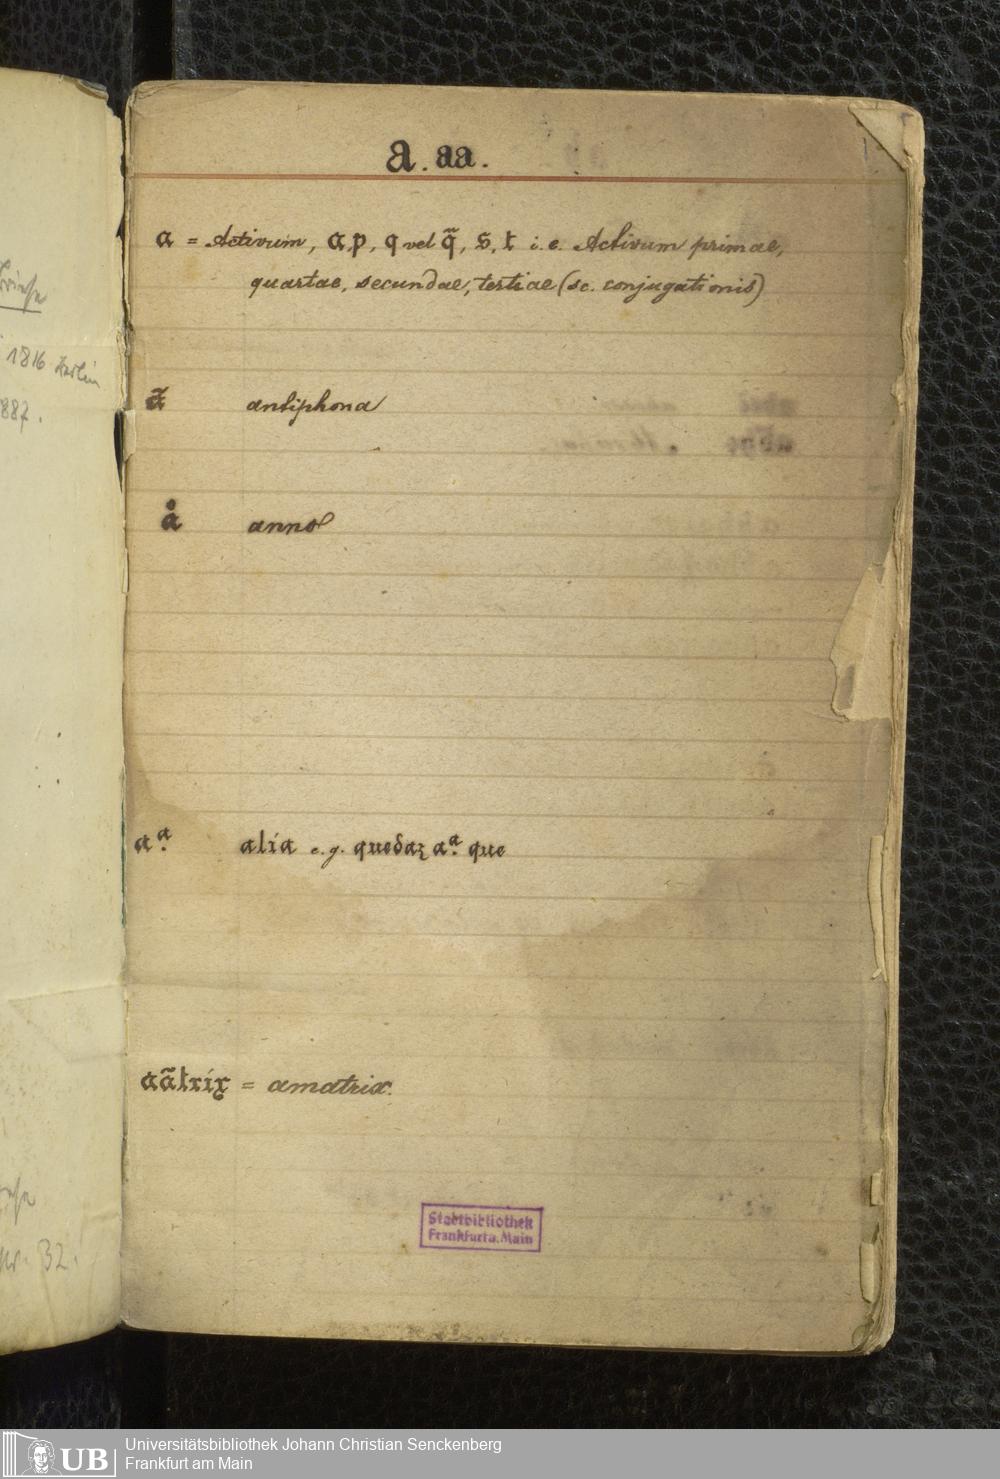 a. aa.
a = Activum, a, p, q vel q̃, s, t i. e. Activum primae,
quartae, secundae, tertiae (sc. conjugationis)
ã antiphona
å anno
aͣ. alia e. g. quedaꝫ aͣ. que
aãtrix = amatrix.
Stadtbibliothek
Frankfurt a. Main
1816 Berlin
887.
32.
UB
Universitätsbibliothek Johann Christian Senckenberg
Frankfurt am Main